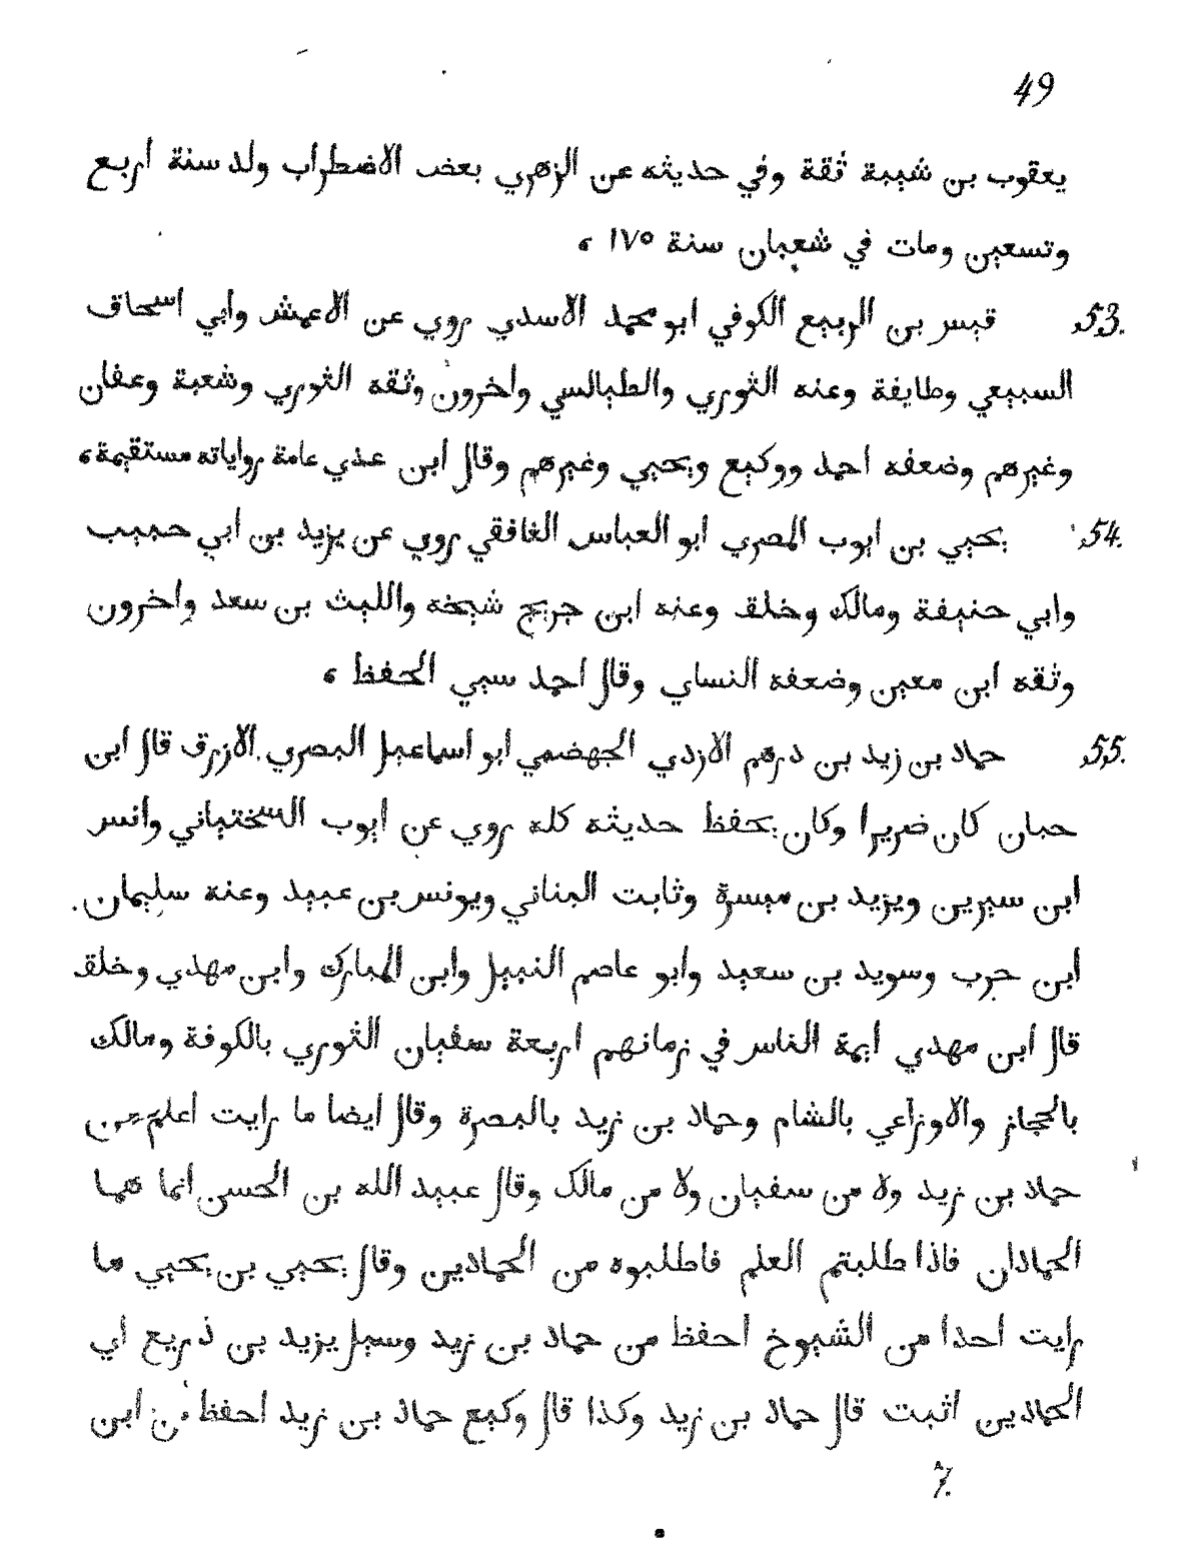 49
يعقوب بن شيبة ثقة وفي حديثه عن الزهري بعض الاضطراب ولد سنة اربع
وتسعين ومات في شعبان سنة ١٧٥ ،
53. قيس بن الربيع الكوفي ابو محمد الاسدي روي عن الاعمش وابي اسحاق
السبيعي وطايفة وعنه الثوري والطيالسي واخرون وثقه الثوري وشعبة وعفان
وغيرهم وضعفه احمد ووكيع ويحيي وغيرهم وقال ابن عدي عامة رواياته مستقيمة ،
54. يحيي بن ايوب المصري ابو العباس الغافقي روي عن يزيد بن ابي حبيب
وابي حنيفة ومالك وخلق وعنه ابن جريج شيخه والليث بن سعد واخرون
وثقه ابن معين وضعفه النساي وقال احمد سيي الحفظ ،
55. حماد بن زيد بن درهم الازدي الجهضمي ابو اسماعيل البصري الازرق قال ابن
حبان كان ضريرا وكان يحفظ حديثه كله روي عن ايوب السختياني وانس
ابن سيرين ويزيد بن ميسرة وثابت البناني ويونس بن عبيد وعنه سليمان
ابن حرب وسويد بن سعيد وابو عاصم النبيل وابن المبارك وابن مهدي وخلق
قال ابن مهدي ايمة الناس في زمانهم اربعة سفيان الثوري بالكوفة ومالك
بالحجاز والاوزاعي بالشام وحماد بن زيد بالبصرة وقال ايضا ما رايت اعلم من
حماد بن زيد ولا من سفيان ولا من مالك وقال عبيد الله بن الحسن انما هما
الحمادان فاذا طلبتم العلم فاطلبوه من الحمادين وقال يحيي بن يحيي ما
رايت احدا من الشيوخ احفظ من حماد بن زيد وسيل يزيد بن ذريع اي
الحمادين اثبت قال حماد بن زيد وكذا قال وكيع حماد بن زيد احفظ من ابن